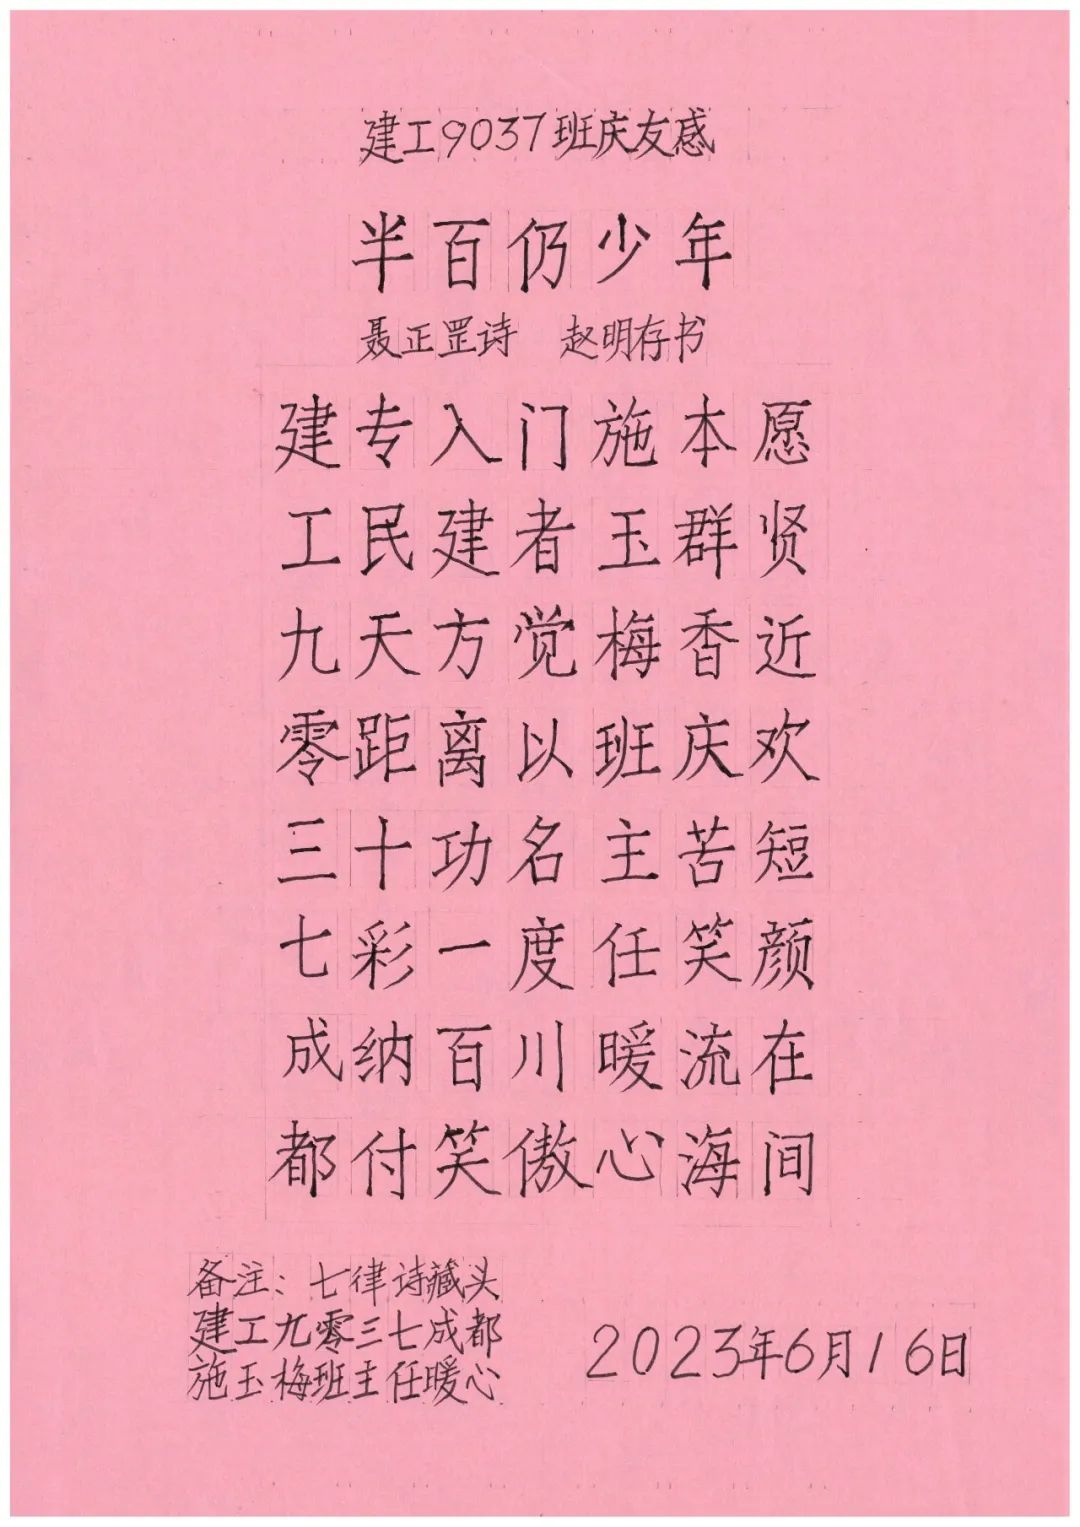 建工9037班庆友感
半百仍少年
聂正罡诗　赵明存书
建专入门施本愿
工民建者玉群贤
九天方觉梅香近
零距离以班庆欢
三十功名主苦短
七彩一度任笑颜
成纳百川暖流在
都付笑傲心海间
备注：七律诗藏头
建工九零三七成都
施玉梅班主任暖心
2023年6月16日